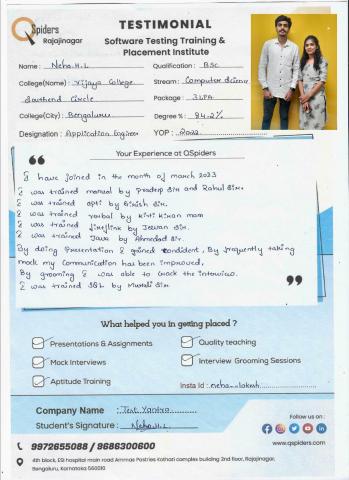 QSpiders
Rajajinagar
TESTIMONIAL
Software Testing Training &
Placement Institute
Name : Neha.H.L
Qualification : BSC
College(Name) : Vijaya College
Stream : Computer Science
Southend Circle
Package : 3LPA
College(City) : Bengaluru
Degree % : 84.2%
Designation : Application Engineer
YOP : 2022
Your Experience at QSpiders
I have joined in the month of march 2023
I was trained manual by Pradeep sir and Rahul sir.
I was trained apti by Girish sir.
I was trained verbal by kiran mam
I was trained by Jeevan sir.
I was trained Java by Ahmedad sir.
By doing Presentation I gained confident, By frequently taking
mock my communication has been improved.
By grooming I was able to crack the interview.
I was trained SQL by Murali sir.
What helped you in getting placed ?
Presentations & Assignments
Quality teaching
Mock Interviews
Interview Grooming Sessions
Aptitude Training
Insta Id :
Company Name : Test Yantra
Student's Signature : Neha.H.L
Follow us on :
www.qspiders.com
9972655088 / 9686300600
4th block, ESI hospital main road Ammas Pastries Kothari complex building 2nd floor, Rajajinagar,
Bengaluru, Karnataka 560010